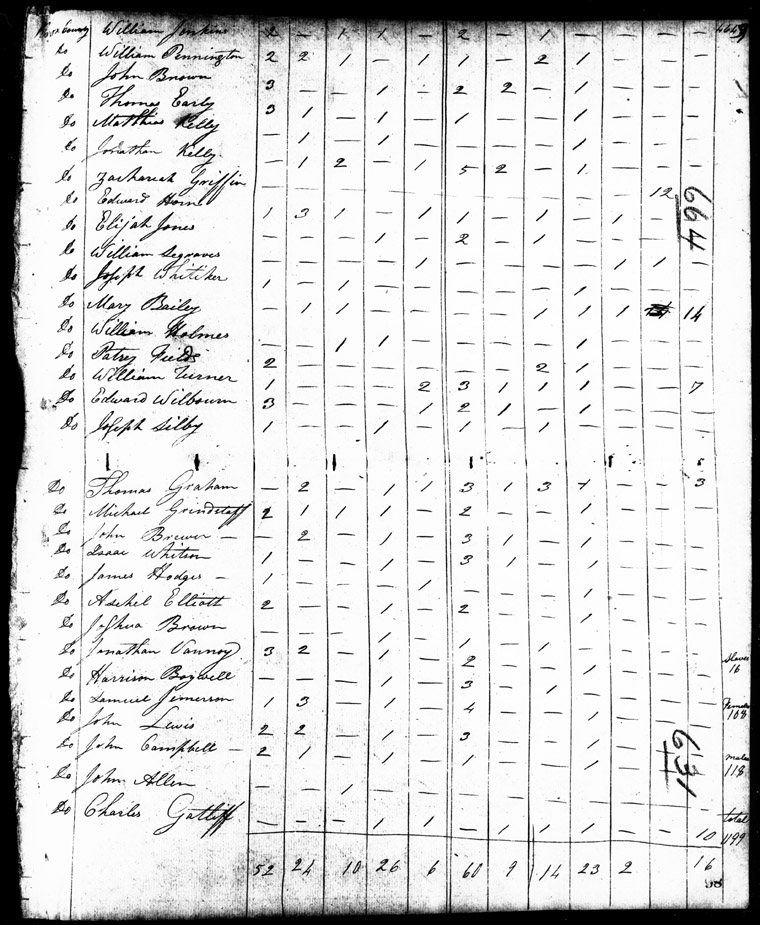 Knox County William Jenkins 2 — 1 1 — 2 — 1 — — — — 4649
Do William Pennington 2 2 1 — 1 1 — 2 1 — — —
Do John Brown 3 — — 1 — 2 2 — 1 — — —
Do Thomas Early 3 1 — 1 — 1 — — 1 — — —
Do Matthias Kelly — 1 — 1 — 1 — — 1 — — —
Do Jonathan Kelly — 1 2 — 1 5 2 — 1 — — —
Do Zachariah Griffin — — — — — — — — — — 12
Do Edward Horn 1 3 1 — 1 1 — 1 — 1 — — 664
Do Elijah Jones — — — 1 — 2 — 1 — — — —
Do William Segraves — — — — 1 — — — — 1 1 —
Do Joseph Whitiker 1 — 1 — — — — — 1 — — —
Do Mary Bailey — 1 1 — — — — 1 1 1 14
Do William Holmes — — 1 1 — — — — 1 — — —
Do Patrey Fields 2 — — — — — — 2 1 — — —
Do William Turner 1 — — — 2 3 1 1 1 — — 7
Do Edward Wilbourn 3 — — — 1 2 1 — 1 — — —
Do Joseph Silby 1 — — 1 — 1 — 1 — — — —
Do Thomas Graham — 2 — 1 1 3 1 3 1 — — 3
Do Michael Grindstaff 2 1 1 1 — 2 — — 1 — — —
Do John Brewer — — 2 — 1 — 3 1 — 1 — — —
Do Isaac Whitson 1 — — 1 — 3 1 — 1 — — —
Do James Hodges — 1 — — — 1 — — — 1 — — —
Do Ashel Elliott 2 — — 1 — 2 — — 1 — — —
Do Joshua Brown — — — 1 — 1 — 1 — — — —
Do Jonathan Vannoy 3 2 — 1 — 2 — — 1 — — — Slaves 16
Do Harrison Bagwell — — — 1 — 3 — 1 — — — —
Do Samuel Jimerson 1 3 — 1 — 4 — — 1 — — — Females 108
Do John Lewis 2 2 — 1 — 3 — — 1 — — —
Do John Campbell — 2 1 — 1 — 1 — — 1 — — — 631 males 118
Do John Allen — — 1 — — — — — — — — —
Do Charles Gatliff — — — 1 1 — 1 1 1 — — 10 total
52 24 10 26 6 60 9 14 23 2 16